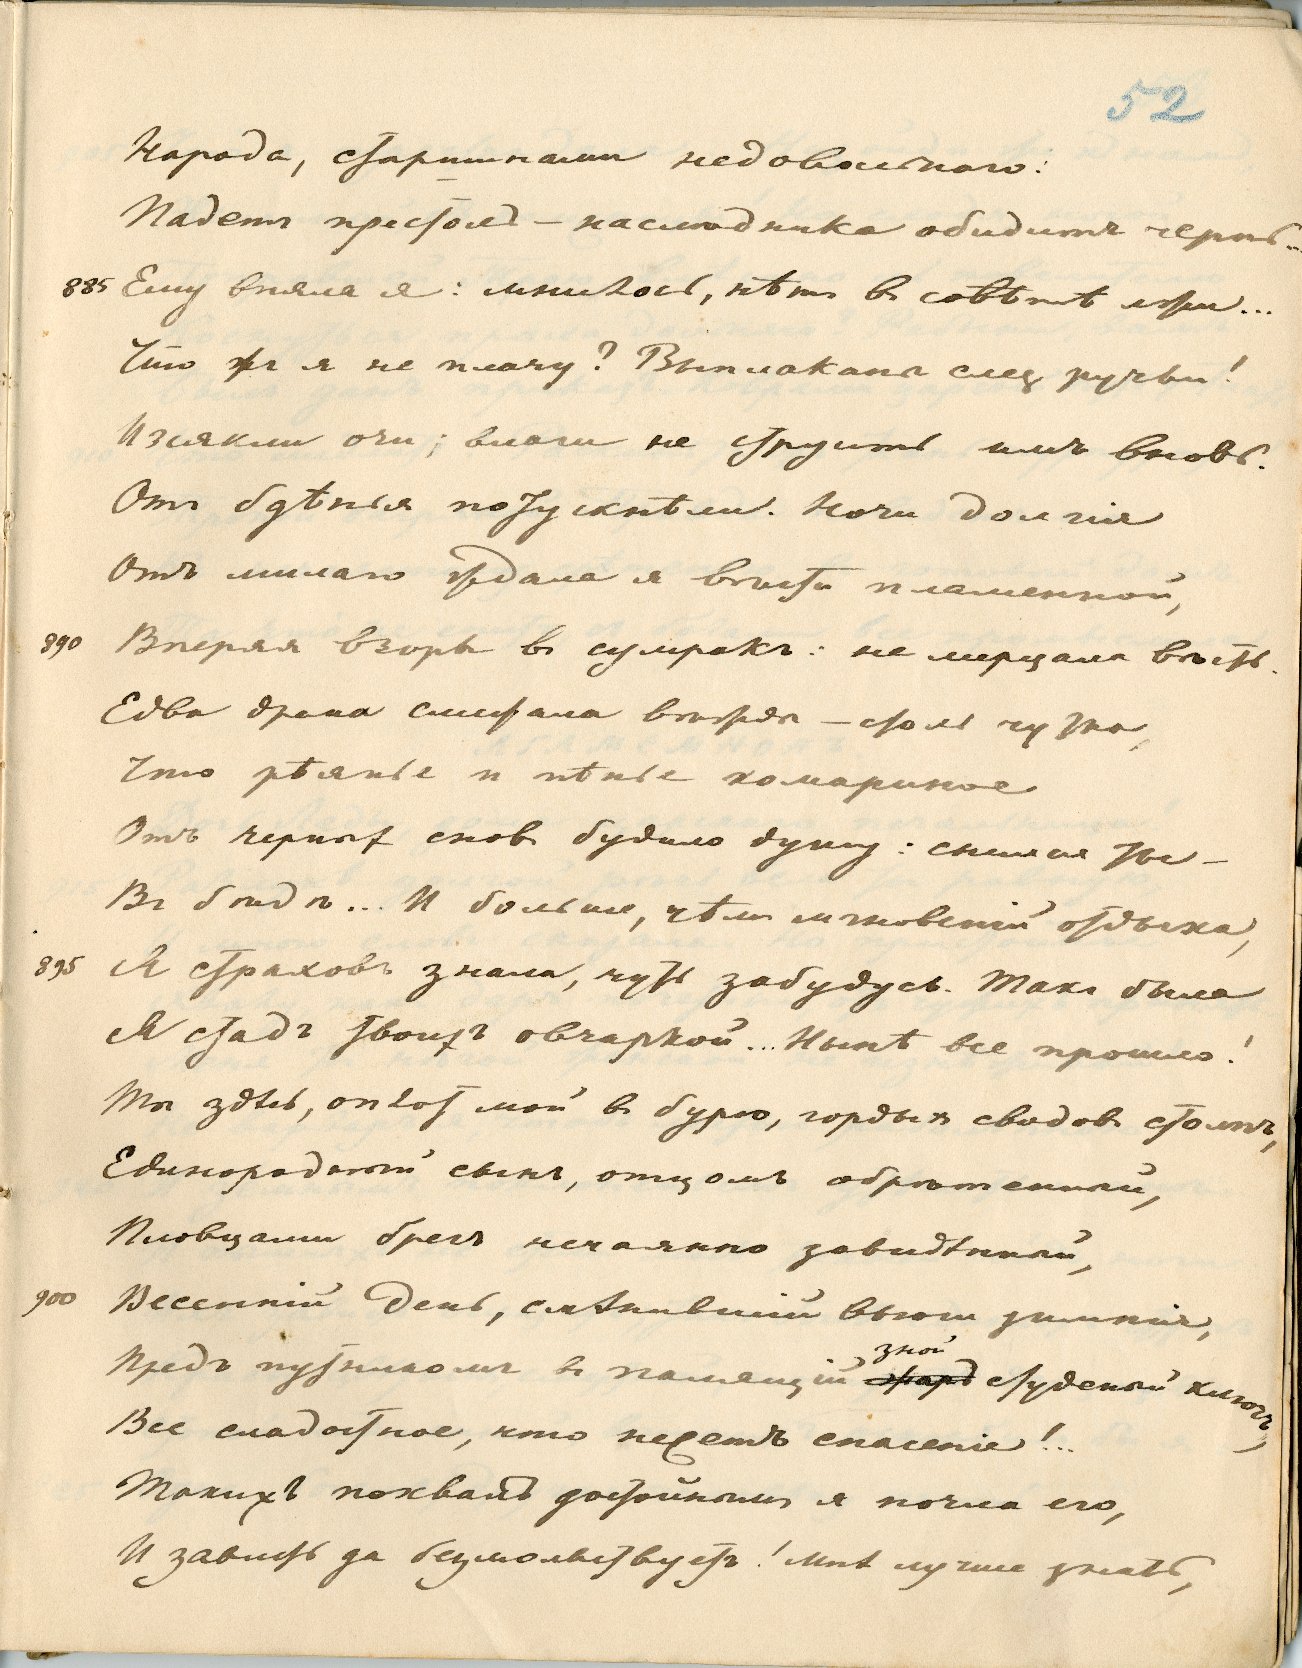 52
Народа, старшинами недовольнаго:
Падетъ престолъ — наслѣдника обидитъ чернь...
885 Ему вняла я: мнилось, нѣтъ въ совѣтѣ лжи...
Что жъ я не плачу? Выплаканы слез ручьи!
Изсякли очи; влаги не струить имъ вновь.
Отъ бдѣнья потускнѣли. Ночи долгія
Отъ милаго ждала я вѣсти пламенной,
890 Вперяя взоры въ сумракъ: не мерцала вѣсть.
Едва дрема смежала вѣжды — столь чутка,
Что рѣянье и пѣнье комариное
Отъ черных сновъ будило душу: снился ты —
Въ бѣдѣ... И больше, чѣмъ мгновеній отдыха,
895 Я страховъ знала, чуть забудусь. Такъ была
Я стадъ твоихъ овчаркой... Нынѣ все прошло!
Ты здѣсь, оплот мой въ бурю, гордыхъ сводовъ столпъ,
Единородный сынъ, отцомъ обрѣтенный,
Пловцами брегъ нечаянно завидѣнный,
900 Весенній день, смѣнившій вьюги зимнія,
зной
Предъ путникомъ въ палящій жаръ студеный ключъ,
Все сладостное, что несетъ спасеніе!..
Такихъ похвалъ достойнымъ я почла его,
И зависть да безмолвствуетъ! Мнѣ лучше знать,